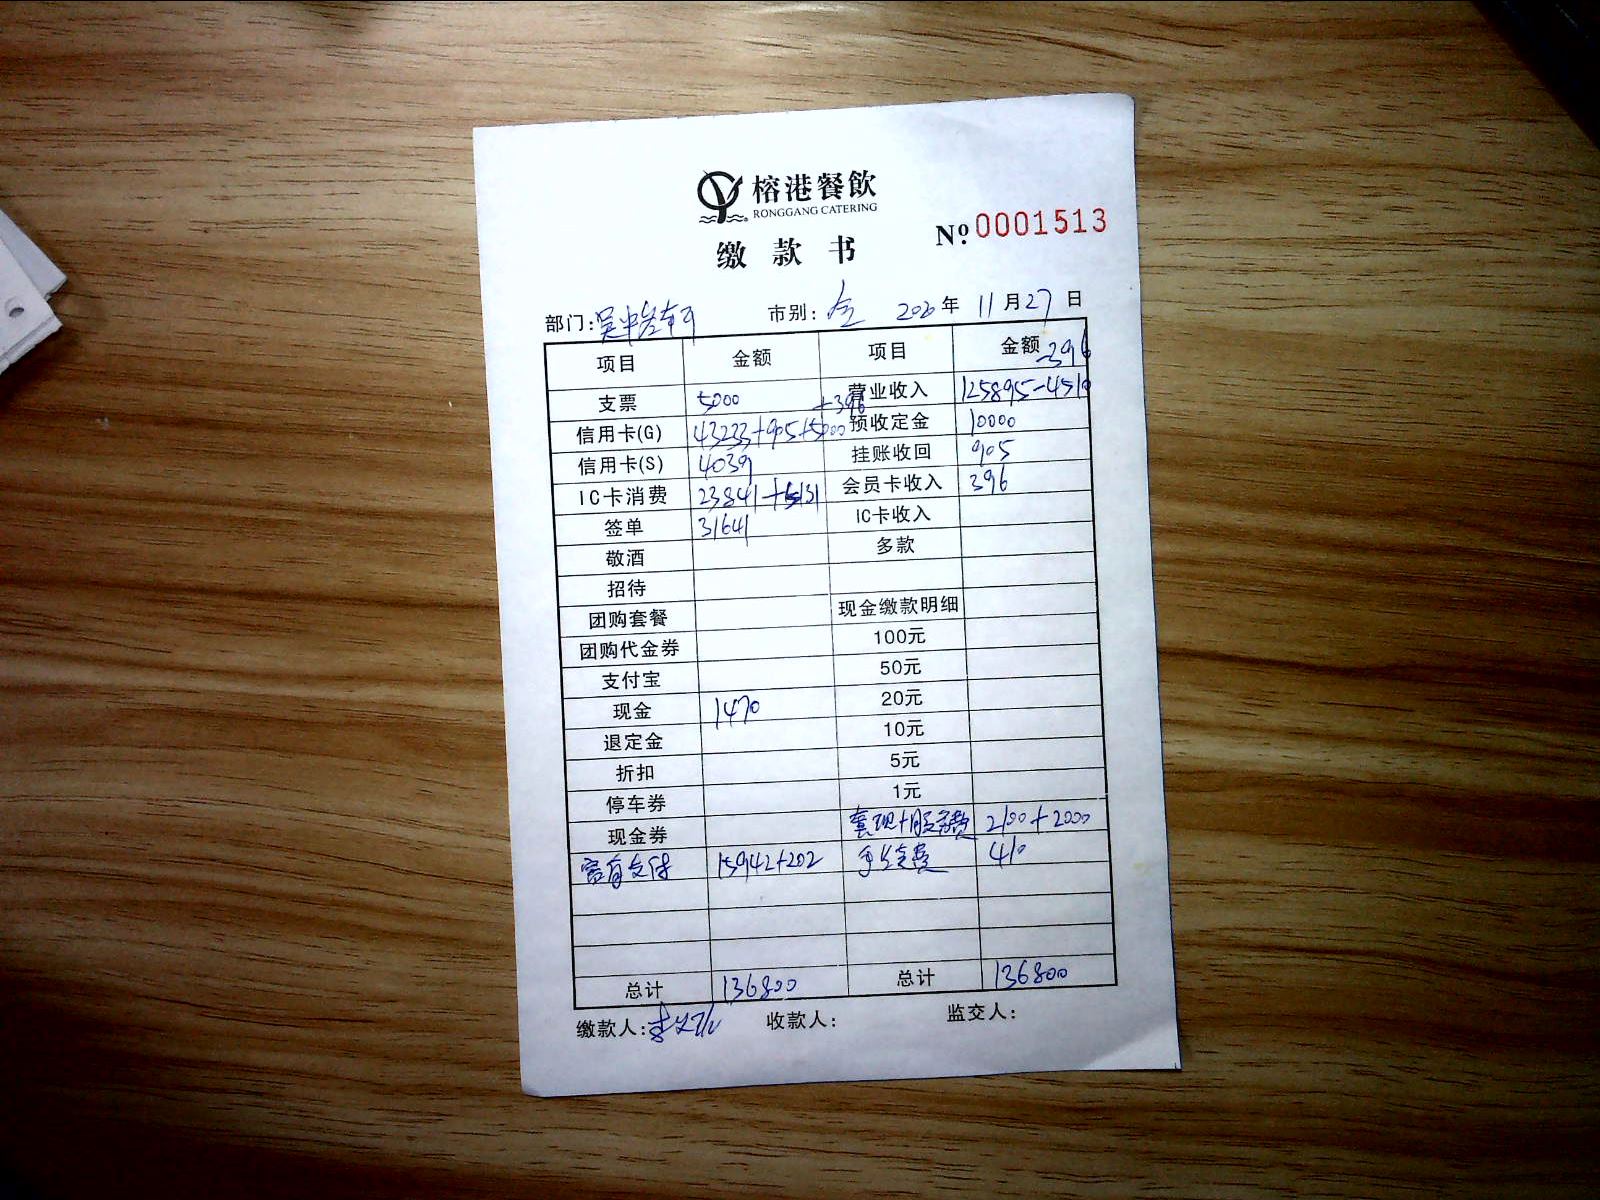 榕港餐飲
RONGGANG CATERING
缴款书
Nº 0001513
部门: 市别:全 2020年 11月27日
项目 金额 项目 金额 -396
支票 5000 营业收入 125895-4510
信用卡(G) 43233+905+5000 +396 预收定金 10000
信用卡(S) 4039 挂账收回 905
IC卡消费 23841+5131 会员卡收入 396
签单 31641 IC卡收入
敬酒 多款
招待
团购套餐 现金缴款明细
团购代金券 100元
支付宝 50元
现金 1470 20元
退定金 10元
折扣 5元
停车券 1元
现金券 套现+服务费 2100+2000
富有支付 15942+202 手续费 410
总计 136800 总计 136800
缴款人: 收款人: 监交人: